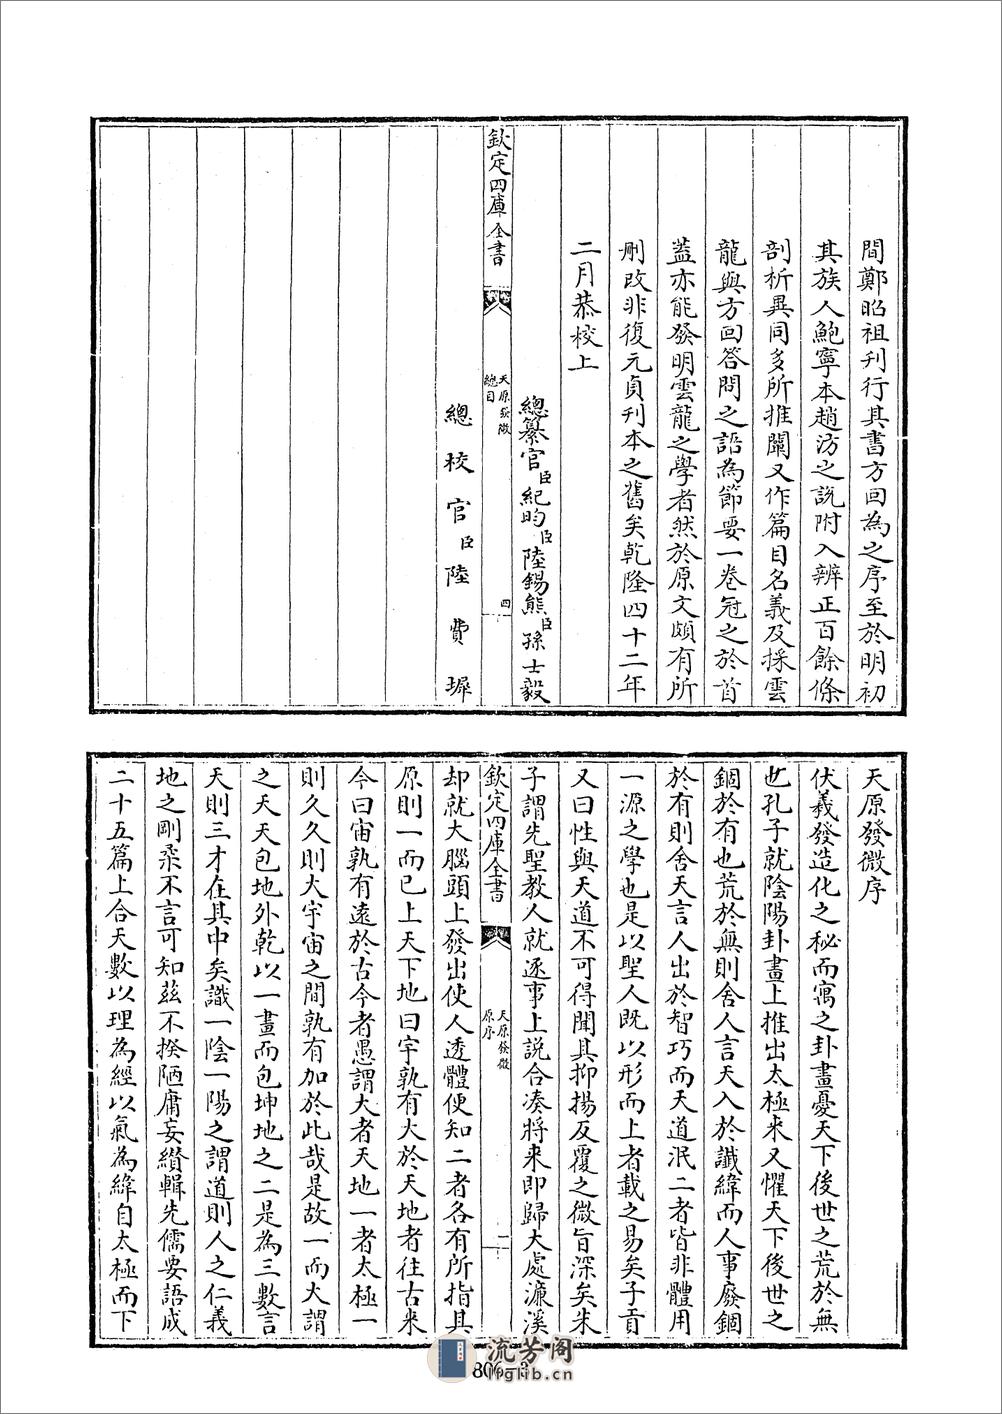 間鄭昭祖刊行其書方回為之序至於明初
其族人鮑寧本趙汸之說附入辨正百餘條
剖析異同多所推闡又作篇目名義及採雲
龍與方回答問之語為節要一卷冠之於首
蓋亦能發明雲龍之學者然於原文頗有所
刪改非復元貞刊本之舊矣乾隆四十二年
二月恭校上
總纂官臣紀昀臣陸錫熊臣孫士毅
欽定四庫全書
天原發微
總目
四
總校官臣陸費墀
天原發微序
伏羲發造化之秘而寓之卦畫憂天下後世之荒於無
也孔子就陰陽卦畫上推出太極来又懼天下後世之
錮於有也荒於無則舍人言天入於讖緯而人事廢錮
於有則舍天言人出於智巧而天道泯二者皆非體用
一源之學也是以聖人既以形而上者載之易矣子貢
又曰性與天道不可得聞其抑揚反覆之微旨深矣朱
子謂先聖教人就逐事上説合湊將来即歸大處濂溪
欽定四庫全書
天原發微
原序
一
却就大腦頭上發出使人透體便知二者各有所指其
原則一而已上天下地曰宇孰有大於天地者往古来
今曰宙孰有遠於古今者愚謂大者天地一者太極一
則久久則大宇宙之間孰有加於此哉是故一而大謂
之天天包地外乾以一畫而包坤地之二是為三數言
天則三才在其中矣識一陰一陽之謂道則人之仁義
地之剛柔不言可知兹不揆陋庸妄纘輯先儒要語成
二十五篇上合天數以理為經以氣為緯自太極而下
流芳阁
lfglib.cn